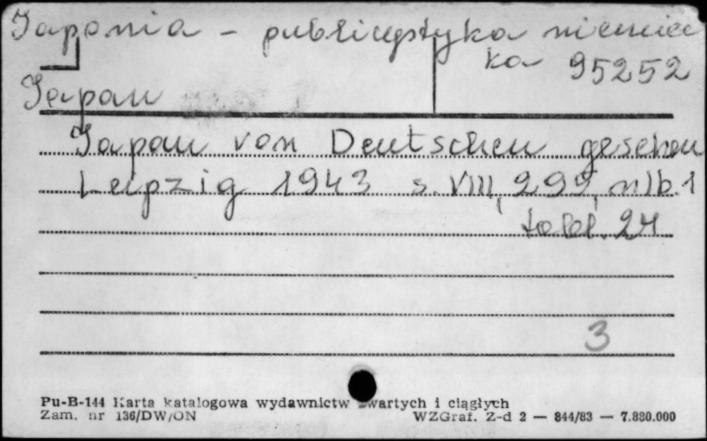 Japonia - publicystyka niemiec
ka 95252
Japan
Japan von Deutschen gesehen
Leipzig 1943 s. VIII, 299, nlb. 1
tabl. 24
3
Pu-B-144 Karta katalogowa wydawnictw zwartych i ciągłych
Zam. nr 136/DW/ON WZGraf. Z-d 2 — 844/83 — 7.880.000